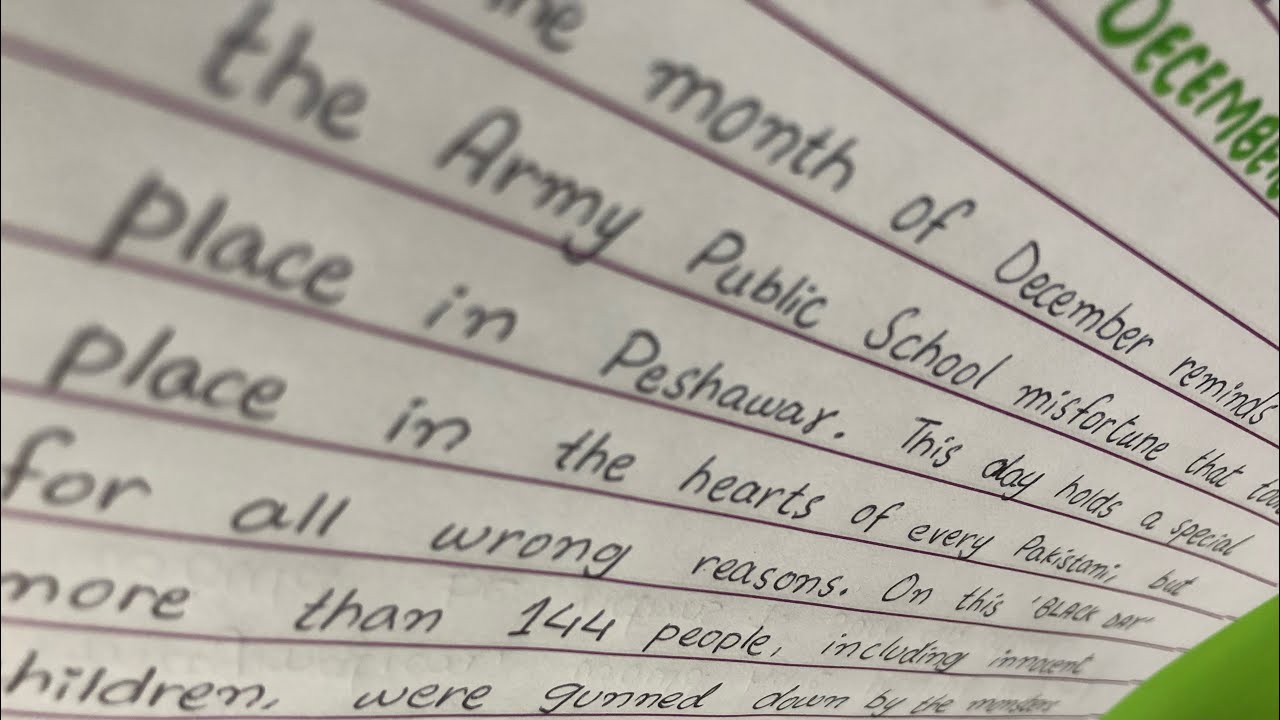 DECEMBER
the month of December reminds
the Army Public School misfortune that
place in Peshawar. This day holds a special
place in the hearts of every Pakistani, but
for all wrong reasons. On this 'BLACK DAY'
more than 144 people, including innocent
hildren, were gunned down by the monsters